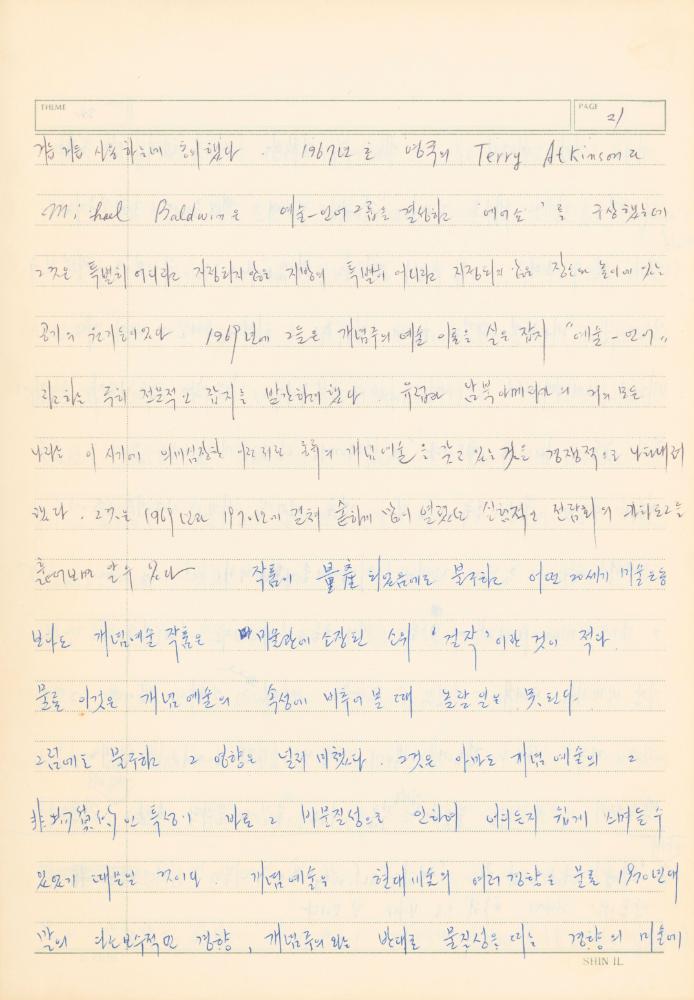 THEME
PAGE
21
거듭 거듭 사용하는데 동의했다. 1967년 초 영국의 Terry Atkinson과
Michael Baldwin은 예술-언어그룹을 결성하고 '에어쇼'를 구상했는데
그것은 특별히 어디라고 지정되지 않은 지방의 특별히 어디라고 지정되지 않은 장소의 높이에 있는
공기의 원기둥이었다 1969년에 그들은 개념주의 예술 이론을 실은 잡지 "예술-언어"
라고하는 특히 전문적인 잡지를 발간하게 했다. 유럽과 남북아메리카의 거의 모든
나라는 이 시기에 의미심장한 종류의 개념예술을 갖고 있는 것을 경쟁적으로 나타내려
했다. 그것은 1969년과 1970년에 걸쳐 숱하게 많이 열렸던 실험적인 전람회의 카타로그를
훑어보면 알수 있다 작품이 量産되었음에도 불구하고 어떤 20세기 미술운동
보다도 개념예술 작품은 미술관에 소장된 소위 '걸작'이란 것이 적다.
물론 이것은 개념예술의 속성에 비추어 볼 때 놀랄 일은 못된다.
그럼에도 불구하고 그 영향은 널리 미쳤다. 그것은 아마도 개념예술의 그
非物質的인 특성이 바로 그 비물질성으로 인하여 어디든지 쉽게 스며들 수
있었기 때문일 것이다. 개념예술은 현대미술의 여러경향은 물론 1970년대
말의 보수적인 경향, 개념주의와는 반대로 물질성을 띠는 경향의 미술에
SHIN IL